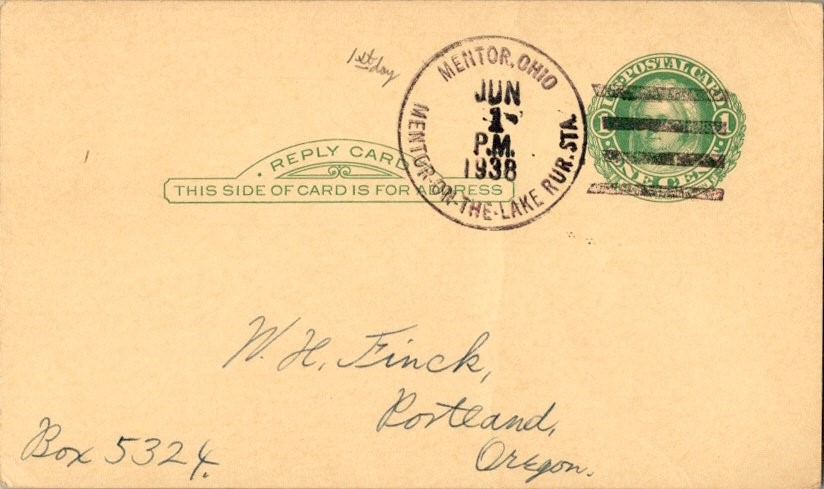 1st day
MENTOR, OHIO
JUN
1
P.M.
1938
MENTOR-ON-THE-LAKE RUR. STA.
U.S. POSTAL CARD
1 1
ONE CENT
REPLY CARD
THIS SIDE OF CARD IS FOR ADDRESS
W. H. Finck,
Portland,
Oregon.
Box 5324.